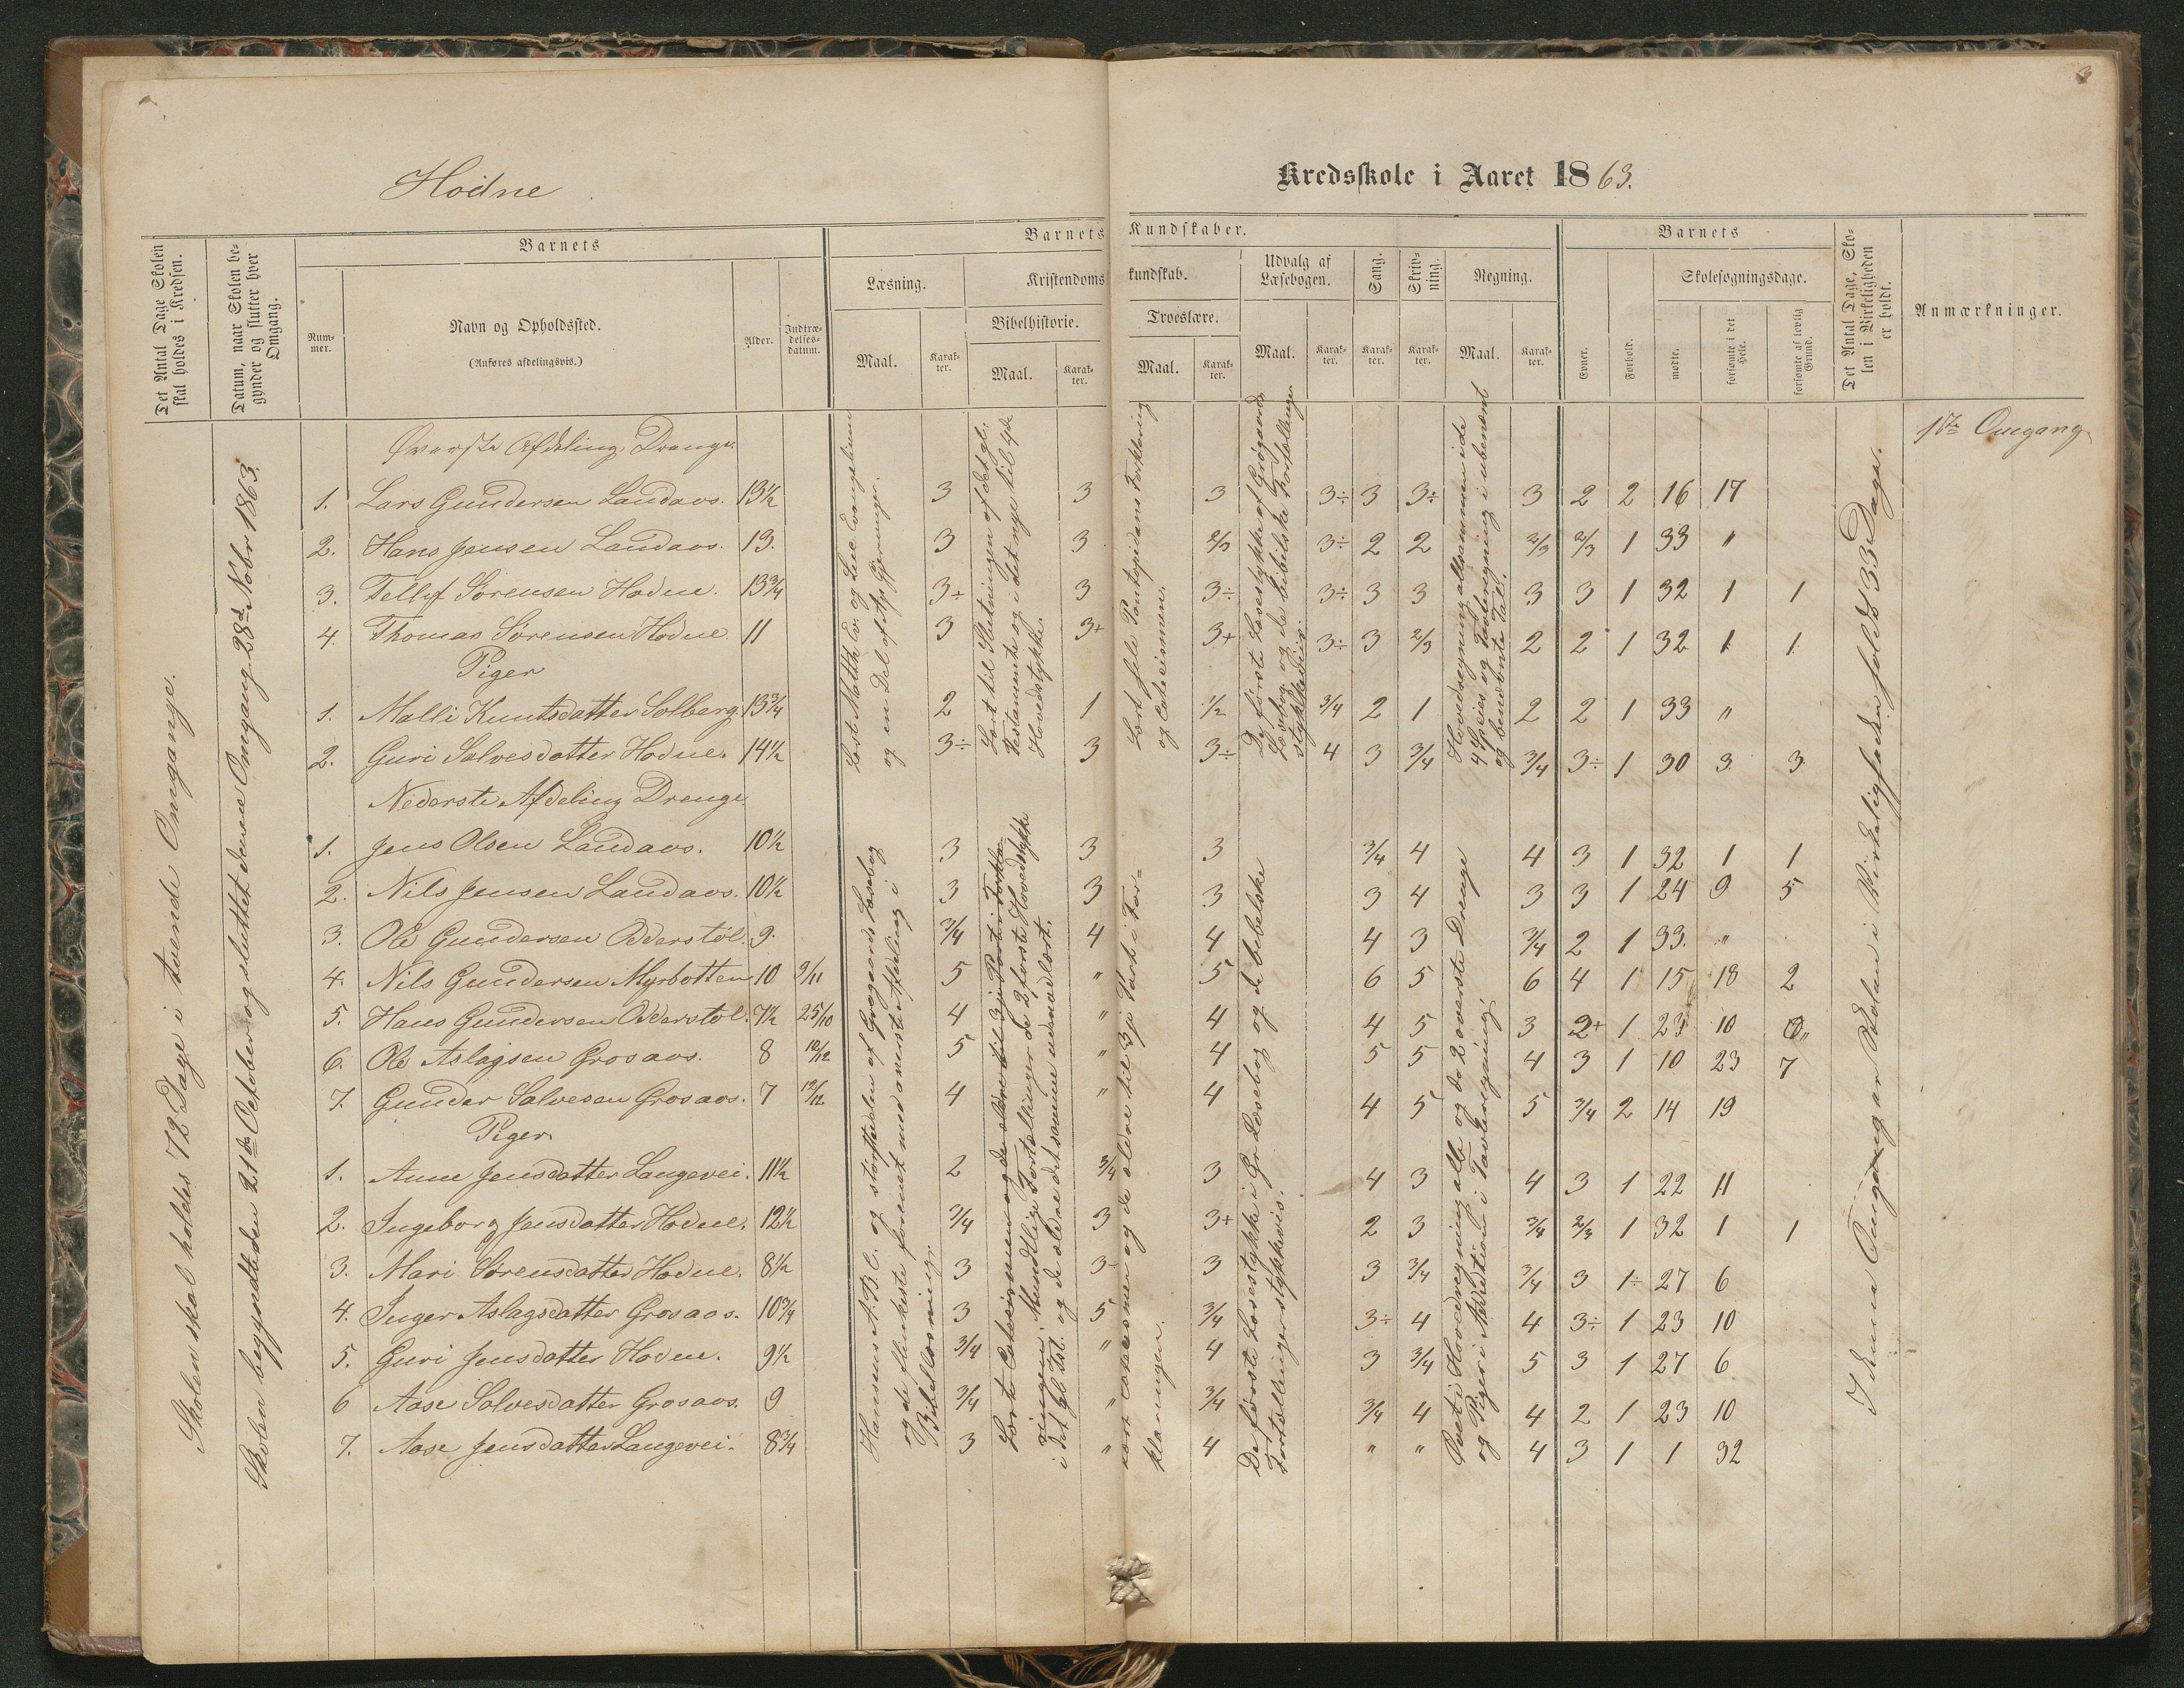 3
Hodne
Kredsskole i Aaret 1863.
Det Antal Dage Skolen skal holdes i Kredsen.
Datum, naar Skolen begynder og slutter hver Omgang.
Barnets
Nummer.
Navn og Opholdssted.
(Anføres afdelingsvis.)
Alder.
Indtrædelsesdatum.
Barnets Kundskaber.
Læsning.
Maal.
Karakter.
Kristendomskundskab.
Bibelhistorie.
Maal.
Karakter.
Troeslære.
Maal.
Karakter.
Udvalg af Læsebogen.
Maal.
Karakter.
Sang.
Karakter.
Skrivning.
Karakter.
Regning.
Maal.
Karakter.
Barnets
Evner.
Forhold.
Skolesøgningsdage.
mødte.
forsømte i det Hele.
forsømte af lovlig Grund.
Det Antal Dage, Skolen i Virkeligheden er holdt.
Anmærkninger.
1ste Omgang
Skolen skal holdes 72 Dage i tvende Omgange.
Skolen begyndte den 21de October og sluttet denne Omgang 28de Nobr 1863.
Øverste Afdeling, Drenge.
1. Lars Gundersen Landaas. 13½ 3 3 3 3÷ 3 3÷ 3 2 2 16 17
2. Hans Jensen Landaas. 13. 3 3 2/3 3÷ 2 2 2/3 2/3 1 33 "
3. Tellef Sørensen Hodne. 13¾ 3÷ 3 3÷ 3÷ 3 3 3 3 1 32 1 1
4. Thomas Sørensen Hodne. 11 3 3+ 3+ 3÷ 3 2/3 2 2 1 32 1 1
Piger
1. Malli Knutsdatter Solberg. 13¾ 2 1 1/2 3/4 2 1 2 2 1 33 "
2. Guri Salvesdatter Hodne. 14½ 3÷ 3 3÷ 4 3 3/4 3/4 3÷ 1 30 3 3
Læst Matth. Ev. og Luc. Evangelium
og en Del af Ap. Gjerninger.
Lært til Slutningen af det gl.
Testamente og i det nye til 4de
Hovedstykke.
Lært hele Pontopidans Forklaring
og Catecismen.
De første Læsestykke af Grøgaards
Læsebog og de bibelske Fortællinger
stykkeviis.
Hovedregning allesammen i de
4 Species og Tavleregning i ubenævnt
og benævnte Tal.
Nederste Afdeling Drenge.
1. Jens Olsen Landaas. 10½ 3 3 3 3/4 4 4 3 1 32 1 1
2. Nils Jensen Landaas. 10½ 3 3 3 3 4 3 3 1 24 9 5
3. Ole Gundersen Odderstøl. 9. 3/4 4 4 4 3 3/4 2 1 33. "
4. Nils Gundersen Myrbotten 10 9/11 5 " 5 6 5 6 4 1 15 18 2
5. Hans Gundersen Odderstøl. 7½ 25/10 4 " 4 4 5 3 2+ 1 23 10 "
6. Ole Aslagsen Grosaas. 8 12/12 5 " 4 5 5 4 3 1 10 23 7
7. Gunder Salvesen Grosaas. 7 12/12 4 " 4 4 5 5 3/4 2 14 19
Piger
1. Anne Jensdatter Langevei. 11½ 2 3/4 3 4 3 4 3 1 22 11
2. Ingeborg Jensdatter Hodne. 12½ 3/4 3 3+ 2 3 3/4 2/3 1 32 1 1
3. Mari Sørensdatter Hodne. 8½ 3 3- 3 3 3/4 3/4 3 1÷ 27 6
4. Inger Aslagsdatter Grosaas. 10¾ 3 5 3/4 3÷ 4 4 3÷ 1 23 10
5. Guri Jensdatter Hodne. 9½ 3/4 " 4 3 3/4 5 3 1 27 6
6 Aase Salvesdatter Grosaas. 9 3/4 " 3/4 3/4 4 4 2 1 23 10
7. Aase Jensdatter Langevei. 8¾ 3 " 4 " " 4 3 1 1 32
Hansens A.B.C. og størstedelen af Grøgaards Læsebog
og de flinkeste forenet med øverste Afdeling i
Bibellæsning.
Lært Catecismen og de ældre til 3je Part i Forkla-
ringen. Mundtlig Fortællinger de 2 første Hovedstykke
i det gl. Tst. og de ældre det samme udenad lært.
Lært Catecismen og de ældre til 3je Part i For-
klaringen.
De første Læsestykke i Gr. Læsebog og de bibelske
Fortællinger stykkevis.
Øvet i Hovedregning alle og de 2 øverste Drenge
og Piger i Addition i Tavleregning.
I denne Omgang er Skolen i Virkeligheden holdt 33 Dage.